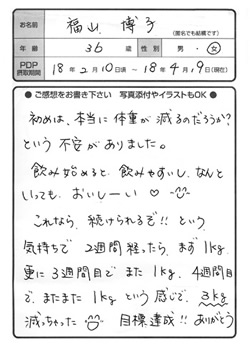 お名前 福山 博子
(匿名でも結構です)
年齢 36 歳 性別 男・女
PDP摂取期間 18年2月10日頃～18年4月19日(現在)
●ご感想をお書き下さい 写真添付やイラストもOK●
初めは、本当に体重が減るのだろうか?
という不安がありました。
飲み始めると、飲みやすいし、なんと
いっても、おいしーい♡
これなら、続けられるぞ!!という
気持ちで 2週間経ったら、まず1kg.
更に3週間目で また1kg. 4週間目
で、またまた1kgという感じで、3kg
減っちゃった 目標達成!! ありがとう